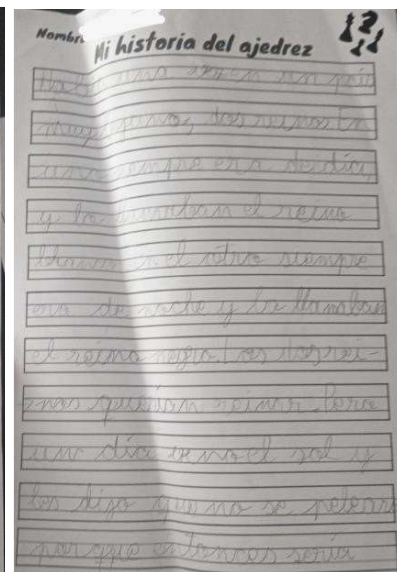 Nombre
Mi historia del ajedrez
Había una vez en un país
muy lejano, dos reinos. En
uno siempre era de día,
y lo llamaban el reino
blanco en el otro siempre
era de noche y lo llamaban
el reino negro. Los dos rei-
nos querían reinar. Pero
un día vino el sol y
les dijo que no se pelearan
porque entonces sería